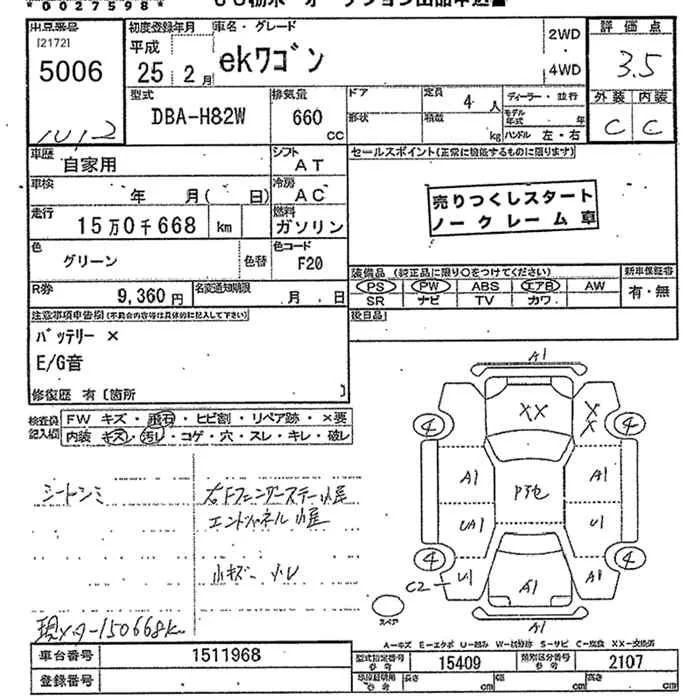 *0027598*
出品番号 初度登録年月 車名・グレード 2WD 評価点
[2172] 平成 ekワゴン 3.5
5006 25年 2月 4WD
型式 排気量 ドア 定員 4人 ディーラー・並行 外装 内装
DBA-H82W 660 形状 積載 モデル年式 年 C C
1012 CC kg ハンドル 左・右
車歴 自家用 シフト AT セールスポイント(正常に機能するものに限ります)
車検 年 月( 日) 冷房 AC 売りつくしスタート
走行 15万0千668 km 燃料 ガソリン ノークレーム車
色 グリーン 色替 色コード F20
装備品 (純正品に限り○をつけてください) 新車保証書
R券 9,360円 名変通知期限 月 日 PS PW ABS エアB AW 有・無
SR ナビ TV カワ
注意事項申告欄(不具合内容等は具体的に記入して下さい) 後日品
バッテリー ×
E/G音
修復歴 有 [箇所 ]
検査員記入欄 FW キズ・飛石・ヒビ割・リペア跡・×要
内装 キズ・汚レ・コゲ・穴・スレ・キレ・破レ
シートシミ 右Fフェンダーステー小尾
エンドパネル小尾
小キズ 小凹
現メーター150668km
A1
XX X X
4 4
A1 Pアセ A1
UA1 U1
4 4
C2 U1 A1 A1
A1
スペア
A-キズ E-エクボ U-凹み W-補修跡 S-サビ C-腐食 XX-交換済
車台番号 1511968 型式指定番号 参考 15409 類別区分番号 参考 2107
登録番号 車検証明用 参考 長さ cm 幅 cm 高さ cm